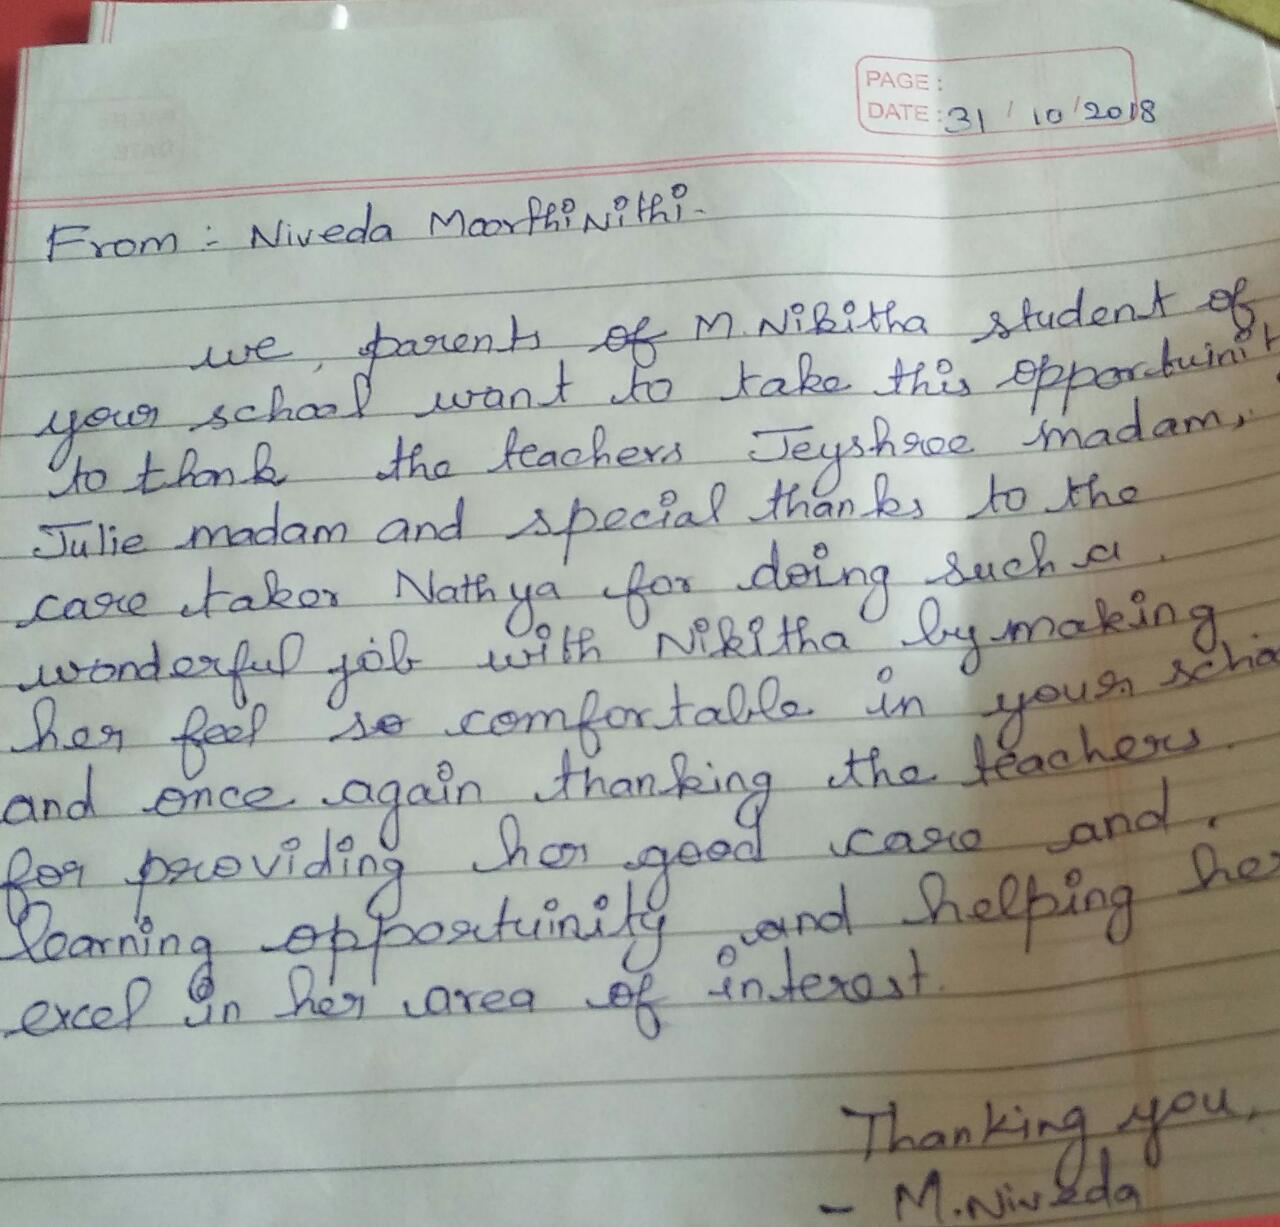 PAGE :
DATE : 31 / 10 / 2018
From :- Niveda MoorthiNithi.
we, parents of M. Nikitha student of
your school want to take this opportuinit
to thank the teachers Jeyshree madam,
Julie madam and special thanks to the
care taker Nathya for doing such a
wonderful job with Nikitha by making
her feel so comfortable in your scho
and once again thanking the teachers
for providing her good care and
learning opportuinity and helping her
excel in her area of interest.
Thanking you,
- M. Niveda